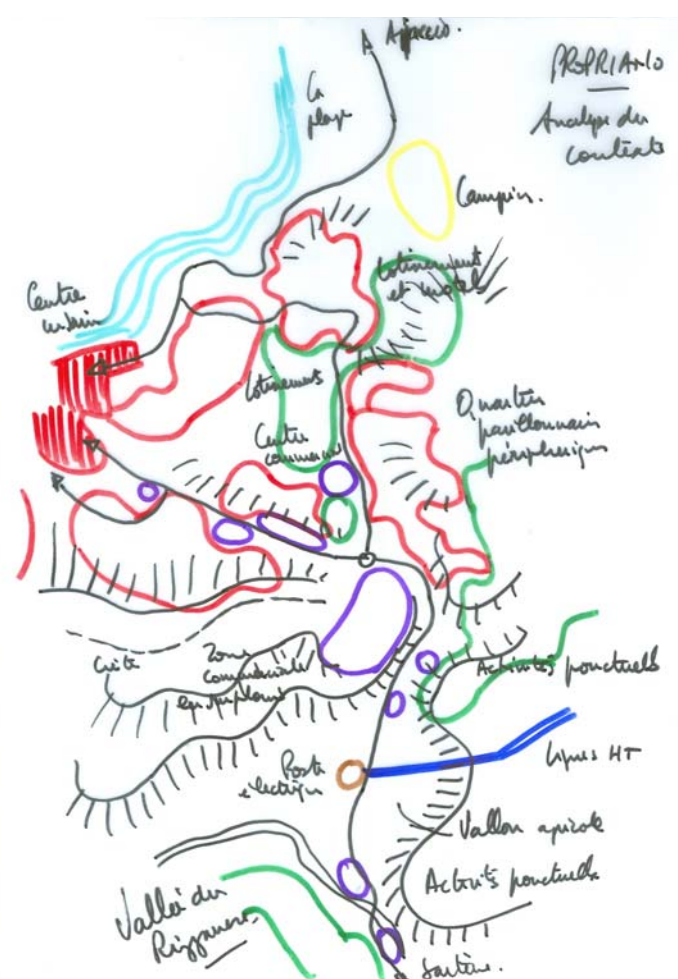 Ajaccio.
PROPRIANO
Analyse du
contexte
La
plage
Camping.
Lotissements
et motels
Centre
urbain
Lotissements
Centre
commercial
Quartiers
pavillonnaires
périphériques
Crête
Zone
commerciale
Activités ponctuelles
Poste
électrique
lignes HT
Vallon agricole
Activités ponctuelles
Vallée du
Rizzanese
Sartène.